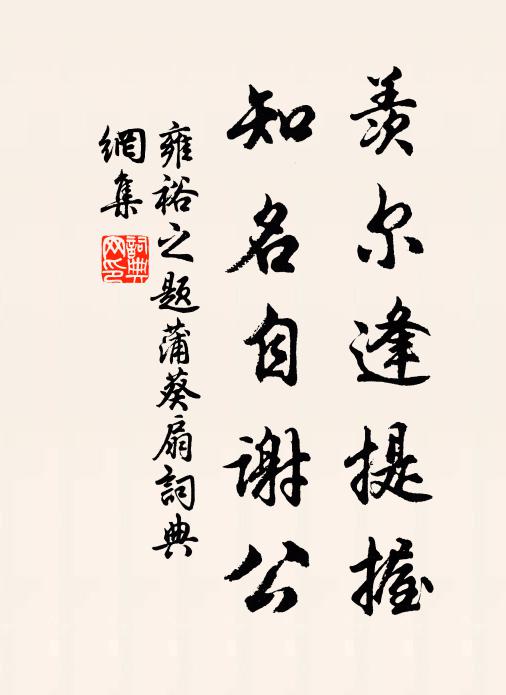 羨尔逢提握
知名自谢公
雍裕之题蒲葵扇詞典
網集
詞典网印